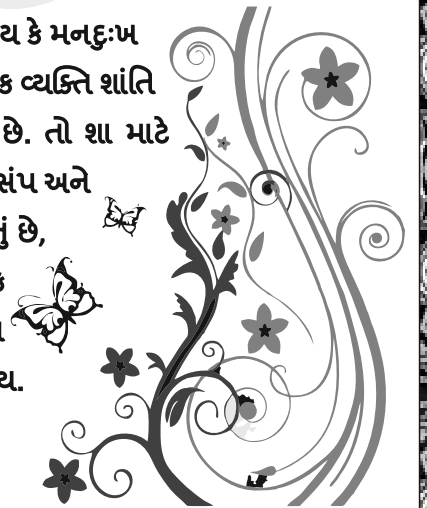 ય કે મનદુઃખ
ક વ્યક્તિ શાંતિ
છે. તો શા માટે
સંપ અને
છે,
ય.